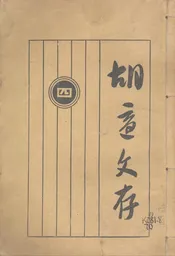 胡適文存
四